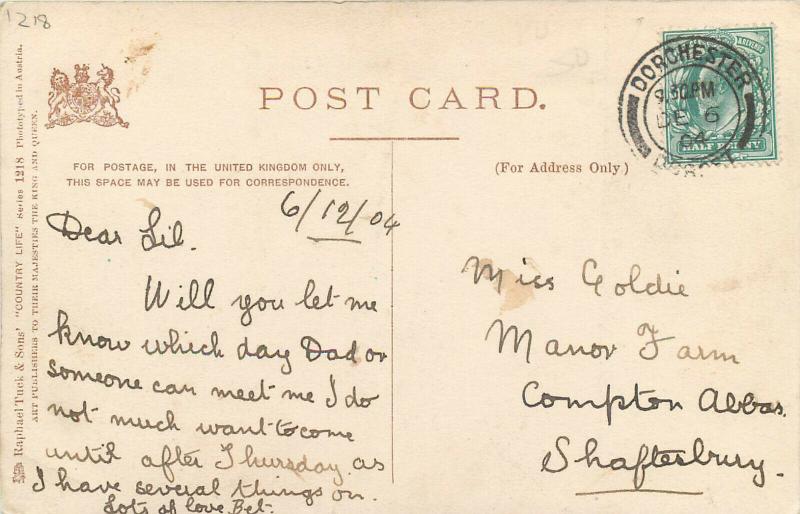 1218
Raphael Tuck & Sons' "COUNTRY LIFE" Series 1218 Phototyped in Austria.
ART PUBLISHERS TO THEIR MAJESTIES THE KING AND QUEEN.
POST CARD.
FOR POSTAGE, IN THE UNITED KINGDOM ONLY,
THIS SPACE MAY BE USED FOR CORRESPONDENCE.
(For Address Only)
DORCHESTER
9.30PM
DE 6
04
DORSET
HALF PENNY
6/12/04
Dear Lil.
Will you let me
know which day Dad or
someone can meet me I do
not much want to come
until after Thursday as
I have several things on.
Lots of love, Bet.
Miss Goldie
Manor Farm
Compton Abbas.
Shaftesbury.